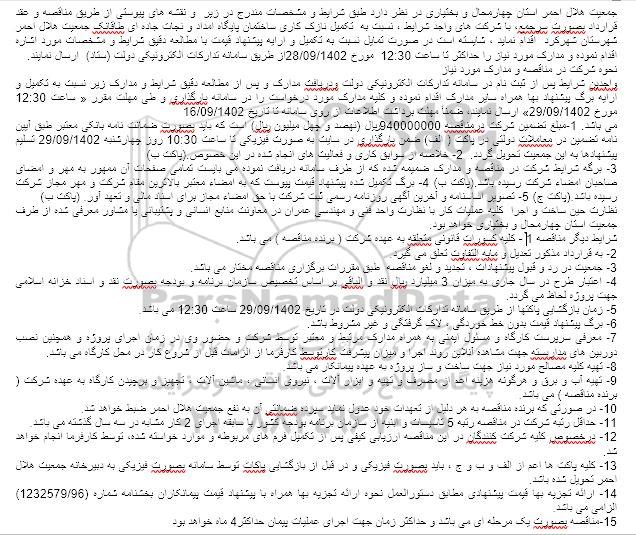 جمعیت هلال احمر استان چهارمحال و بختیاری در نظر دارد طبق شرایط و مشخصات مندرج در زیر و نقشه های پیوستی از طریق مناقصه و عقد
قرارداد بصورت سرجمع، با شرکت های واجد شرایط ، نسبت به تکمیل نازک کاری ساختمان پایگاه امداد و نجات جاده ای طاقانک جمعیت هلال احمر
شهرستان شهرکرد اقدام نماید ، شایسته است در صورت تمایل نسبت به تکمیل و ارایه پیشنهاد قیمت با مطالعه دقیق شرایط و مشخصات مورد اشاره
اقدام نموده و مدارک مورد نیاز را حداکثر تا ساعت 12:30 مورخ 28/09/1402از طریق سامانه تدارکات الکترونیکی دولت (ستاد) ارسال نمایند.
نحوه شرکت در مناقصه و مدارک مورد نیاز
واجدین شرایط پس از ثبت نام در سامانه تدارکات الکترونیکی دولت ودریافت مدارک و پس از مطالعه دقیق شرایط و مدارک زیر نسبت به تکمیل و
ارایه برگ پیشنهاد بها همراه سایر مدارک اقدام نموده و کلیه مدارک مورد درخواست را در سامانه بارگذاری و طی مهلت مقرر « ساعت 12:30
مورخ 29/09/1402» ارسال نمایند، ضمناً مهلت برداشت اطلاعات از روی سامانه تا تاریخ 16/09/1402
می باشد. 1-مبلغ تضمین شرکت در مناقصه 940000000ریال (نهصد و چهل میلیون ریال) است که باید بصورت ضمانت نامه بانکی معتبر طبق آیین
نامه تضمین در معاملات دولتی در پاکت ( الف) ضمن بارگذاری در سایت به صورت فیزیکی تا ساعت 10:30 روز چهارشنبه 29/09/1402 تسلیم
پیشنهادها به این جمعیت تحویل گردد . 2- خلاصه از سوابق کاری و فعالیت های انجام شده در این خصوص.(پاکت ب)
3- برگه شرایط شرکت در مناقصه و مدارک ضمیمه شده که از طرف سامانه دریافت نموده می بایست تمامی صفحات آن ممهور به مهر و امضای
صاحبان امضاء شرکت رسیده باشد.(پاکت ب) 4- برگ تکمیل شده پیشنهاد قیمت پیوست که به امضاء معتبر بالاترین مقام شرکت و مهر مجاز شرکت
رسیده باشد.(پاکت ج) 5- تصویر اساسنامه و آخرین آگهی روزنامه رسمی ثبت شرکت با حق امضاء مجاز برای اسناد مالی و تعهد آور . (پاکت ب)
نظارت حین ساخت و اجرا کلیه عملیات کار با نظارت واحد فنی و مهندسی عمران در معاونت منابع انسانی و پشتیبانی یا مشاور معرفی شده از طرف
جمعیت استان چهارمحال و بختیاری خواهد بود.
شرایط دیگر مناقصه 1- کلیه کسورات قانونی متعلقه به عهده شرکت ( برنده مناقصه ) می باشد.
2- به قرارداد مذکور تعدیل و مابه التفاوت تعلق می گیرد
3- جمعیت در رد و قبول پیشنهادات ، تجدید و لغو مناقصه طبق مقررات برگزاری مناقصه مختار می باشد.
4- اعتبار طرح در سال جاری به میزان 3 میلیارد ریال نقد و الباقی بر اساس تخصیص سازمان برنامه و بودجه بصورت نقد و اسناد خزانه اسلامی
جهت پروژه لحاظ می گردد.
5- زمان بازگشایی پاکتها از طریق سامانه تدارکات الکترونیکی دولت در تاریخ 29/09/1402 ساعت 12:30 می باشد.
6- برگ پیشنهاد قیمت بدون خط خوردگی ، لاک گرفتگی و غیر مشروط باشد.
7- معرفی سرپرست کارگاه و مسئول ایمنی به همراه مدارک مرتبط و معتبر توسط شرکت و حضور وی در زمان اجرای پروژه و همچنین نصب
دوربین های مدار بسته جهت مشاهده آنلاین روند اجرا و میزان پیشرفت کار توسط کارفرما از الزامات قبل از شروع کار در محل کارگاه می باشد.
8- تهیه کلیه مصالح مورد نیاز جهت ساخت و ساز پروژه به عهده پیمانکار می باشد.
9- تهیه آب و برق و هرگونه هزینه اعم از مصرف یا تهیه و ابزار آلات ، نیروی انسانی ، ماشین آلات ، تجهیز و برچیدن کارگاه به عهده شرکت (
برنده مناقصه ) می باشد.
10- در صورتی که برنده مناقصه به هر دلیل از تعهدات خود عدول نماید سپرده ضمانتی آن به نفع جمعیت هلال احمر ضبط خواهد شد.
11- حداقل رتبه شرکت در مناقصه رتبه 5 تاسیسات و ابنیه از سازمان برنامه بودجه کشور با سابقه اجرای 2 کار مشابه در سه سال گذشته می باشد.
12- درخصوص کلیه شرکت کنندگان در این مناقصه ارزیابی کیفی پس از تکمیل فرم های مربوطه و موارد خواسته شده، توسط کارفرما انجام خواهد
شد.
13- کلیه پاکت ها اعم از الف و ب و ج ، باید بصورت فیزیکی و در قبل از بازگشایی پاکات توسط سامانه بصورت فیزیکی به دبیرخانه جمعیت هلال
احمر تحویل شده باشد.
14- ارائه تجزیه بها قیمت پیشنهادی مطابق دستورالعمل نحوه ارائه تجزیه بها همراه با پیشنهاد قیمت پیمانکاران بخشنامه شماره (1232579/96)
الزامی می باشد.
15-مناقصه بصورت یک مرحله ای می باشد و حداکثر زمان جهت اجرای عملیات پیمان حداکثر4 ماه خواهد بود
ParsNamadData